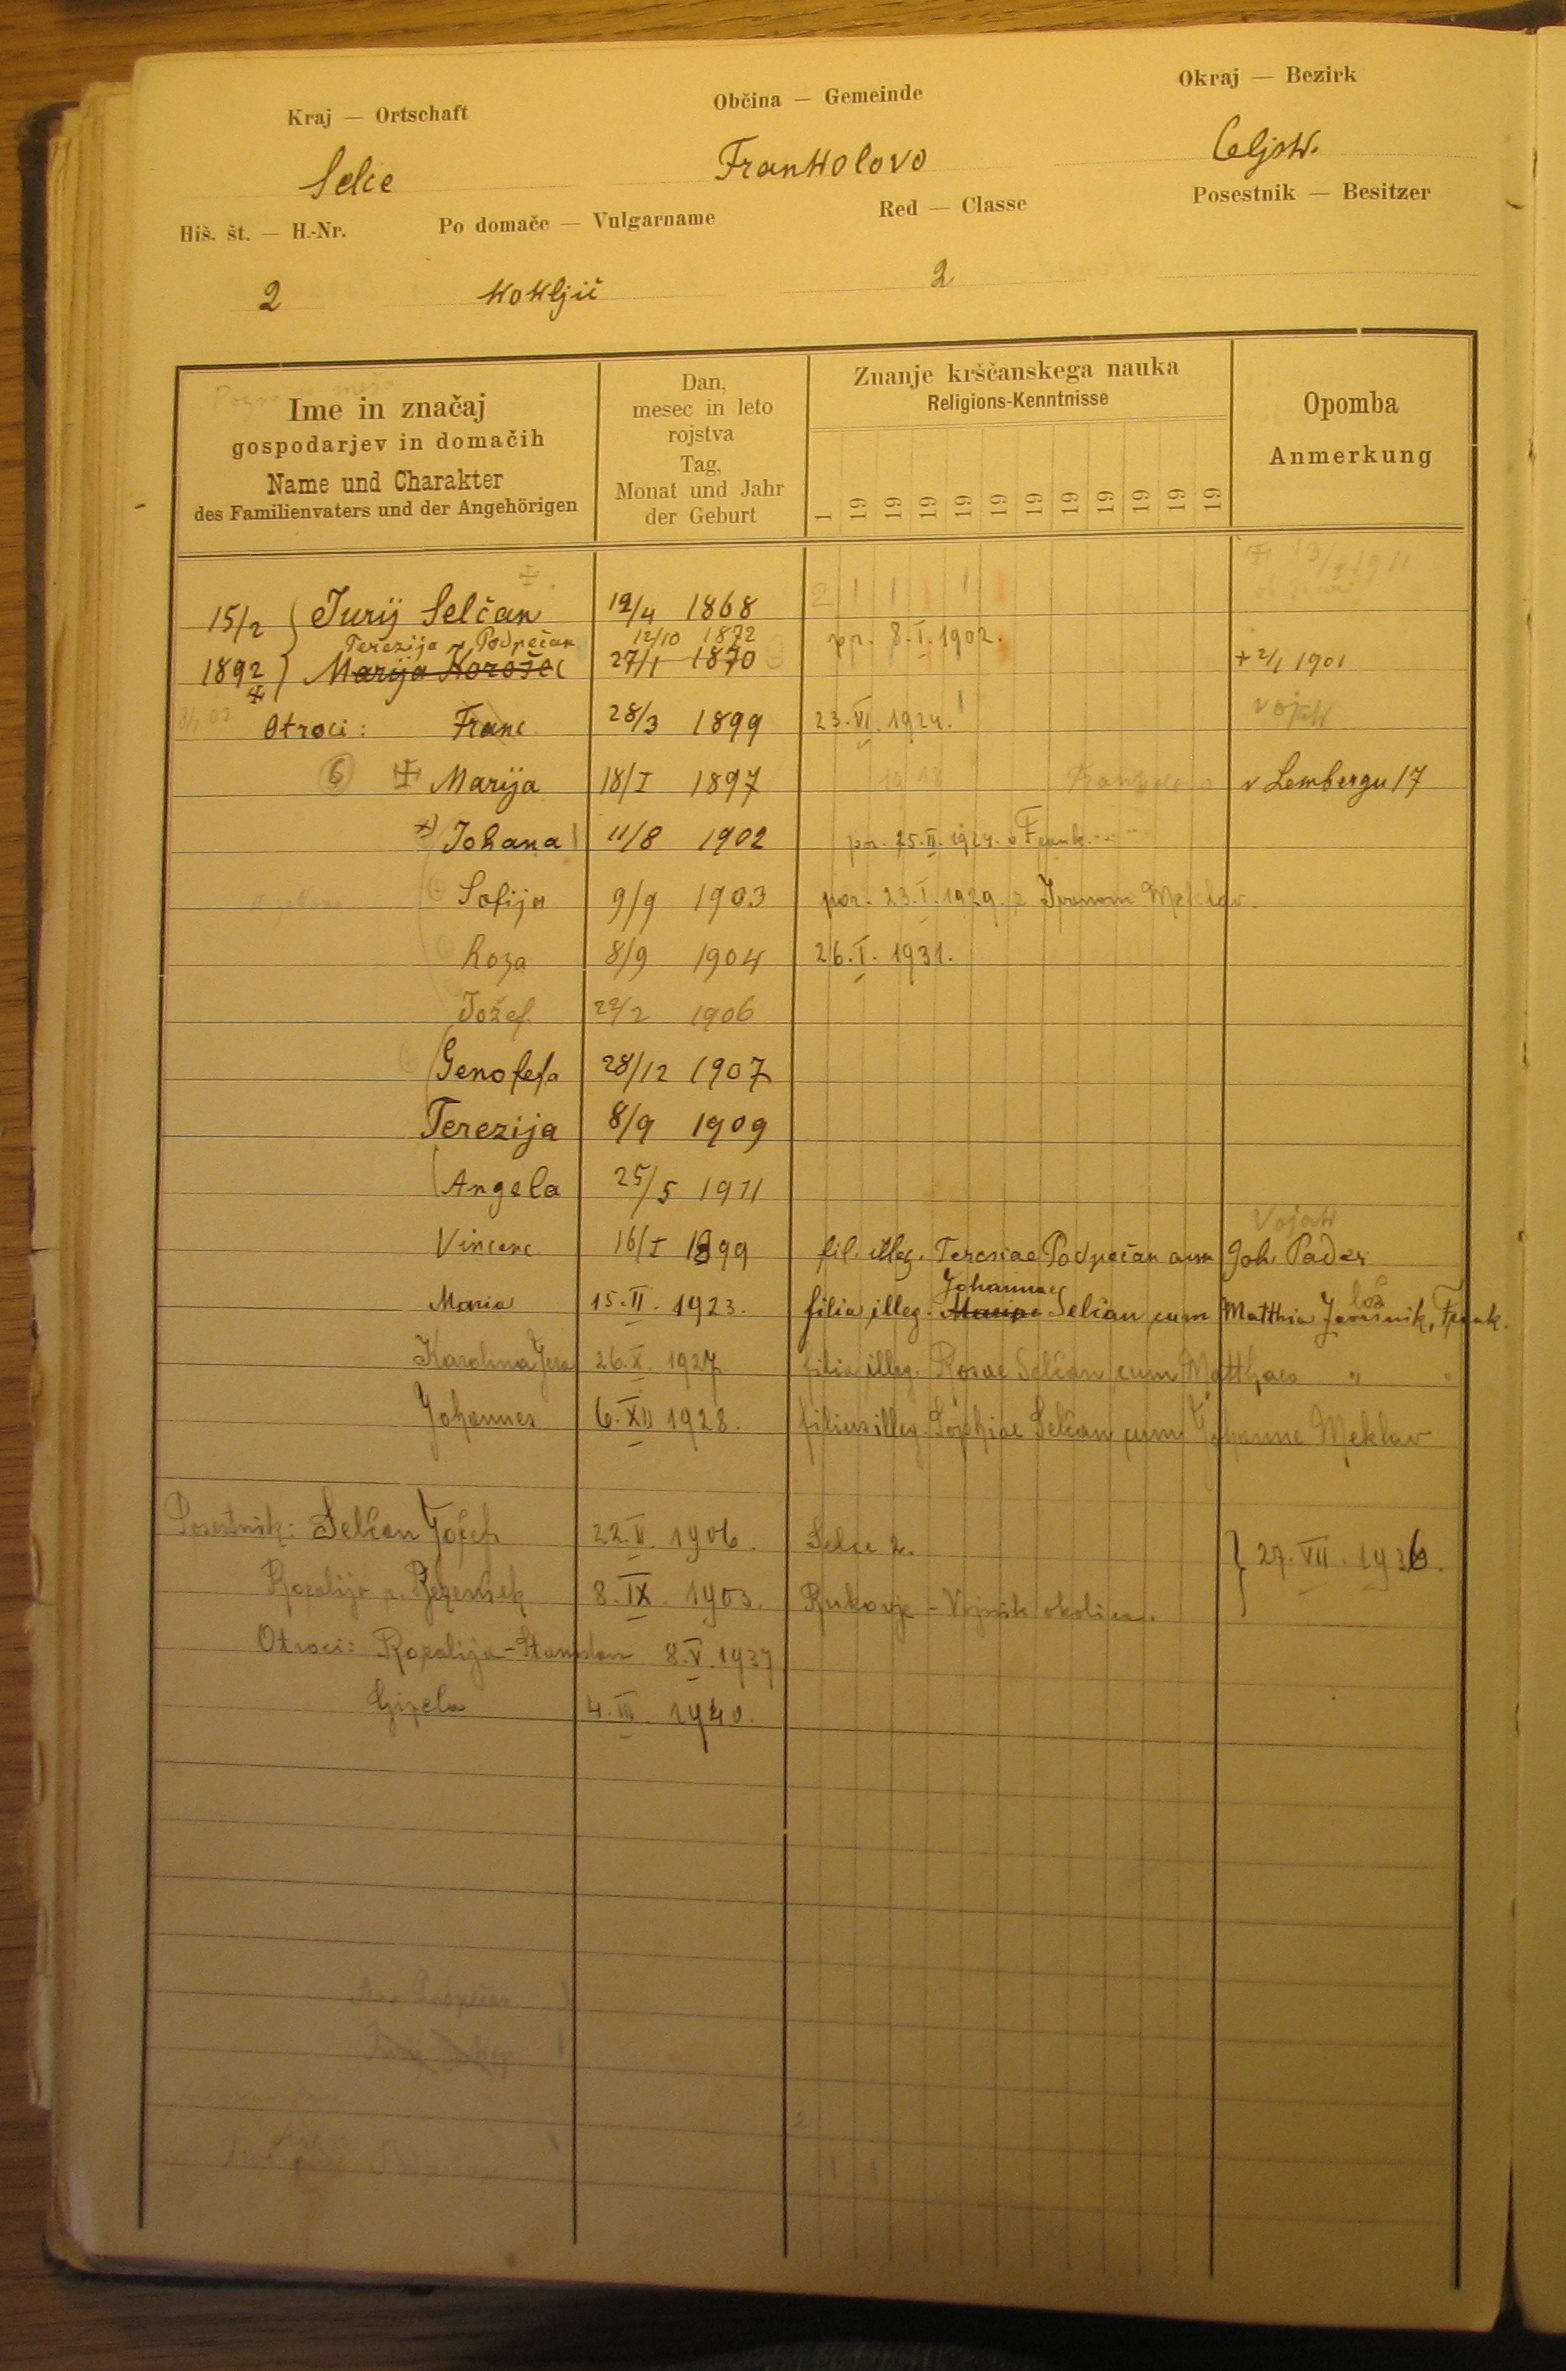 Kraj — Ortschaft
Občina — Gemeinde
Okraj — Bezirk
Selce
Frankolovo
Celjsk.
Hiš. št. — H.-Nr.
Po domače — Vulgarname
Red — Classe
Posestnik — Besitzer
2
Kokljič
2
Ime in značaj
gospodarjev in domačih
Name und Charakter
des Familienvaters und der Angehörigen
Dan,
mesec in leto
rojstva
Tag,
Monat und Jahr
der Geburt
Znanje krščanskega nauka
Religions-Kenntnisse
1 19 19 19 19 19 19 19 19 19 19 19
Opomba
Anmerkung
15/2 Jurij Selčan 19/4 1868
Terezija r. Podpečan 12/10 1872 pr. 8. I. 1902.
1892 Marija Korošec 27/1 1870 + 2/1 1901
Otroci: Franc 28/3 1899 23. VI. 1924. vojak
6 Marija 18/I 1897 v Lembergu 17
Johana 11/8 1902 por. 25. II. 1924. v Frank.
Sofija 9/9 1903 por. 23. I. 1929. z Ivanom Meklav.
Roza 8/9 1904 26. I. 1931.
Jožef. 22/2 1906
Genofefa 28/12 1907
Terezija 8/9 1909
Angela 25/5 1911
Vojak
Vincenc 16/I 1899 fil. illeg. Teresiae Podpečan cum Joh. Pader
Johannae
Maria 15. II. 1923. filia illeg. Selčan cum Matthia Javeršnik, Frank.
Karolina 26. X. 1927. filia illeg. Rosae Selčan cum Matthaeo "
Johannes 6. XII 1928. filius illeg. Sophiae Selčan cum Johanne Meklav
Posestnik: Selčan Jožef 22. II. 1906. Selce 2. 27. VII. 1936.
Rozalija r. 8. IX. 1903. Rukovje - Vojnik okolica.
Otroci: Rozalija - Stanislava 8. V. 1937
Gizela 4. III 1940.